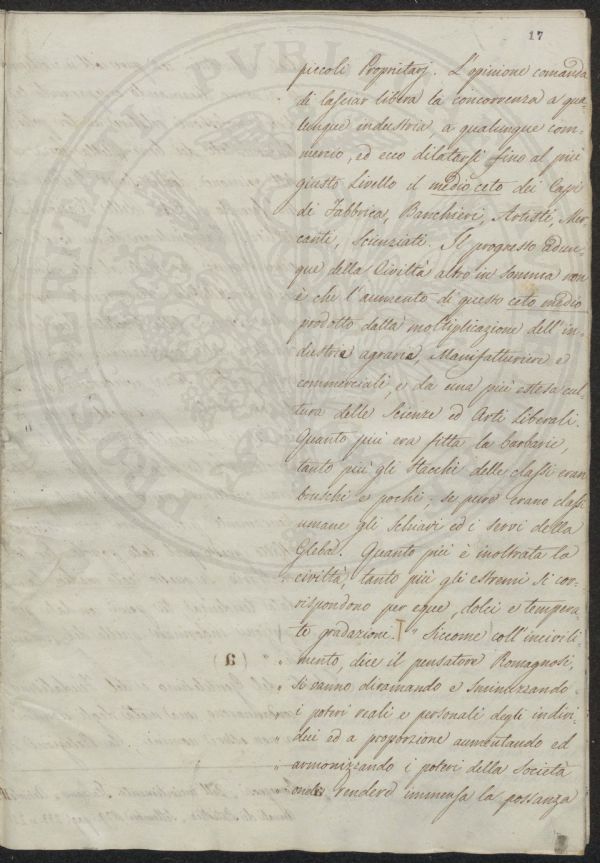 17
piccoli Proprietarj. L'opinione comanda
di lasciar libera la concorrenza a qua-
lunque industria, a qualunque com-
mercio, ed ecco dilatarsi fino al più
giusto livello il medio ceto dei Capi
di Fabbrica, Banchieri, Artisti, Mer-
canti, Scienziati. Il progresso adun-
que della Civiltà altro in somma non
è che l'aumento di questo ceto medio
prodotto dalla moltiplicazione dell'in-
dustrie agrarie, Manifatturiere e
commerciali, e da una più estesa cul-
tura delle Scienze ed Arti Liberali.
Quanto più era fitta la barbarie,
tanto più gli stacchi delle classi eran
bruschi e pochi, se pure erano classi
umane gli Schiavi ed i servi della
Gleba. Quanto più è inoltrata la
civiltà, tanto più gli estremi si cor-
rispondono per eque, dolci e tempera-
te gradazioni. " Siccome coll'incivili-
" mento, dice il pensatore Romagnosi,
" si vanno diramando e sminuzzando
" i poteri reali e personali degli indivi-
" dui ed a proporzione aumentando ed
" armonizzando i poteri della Società
" onde rendere immensa la possanza